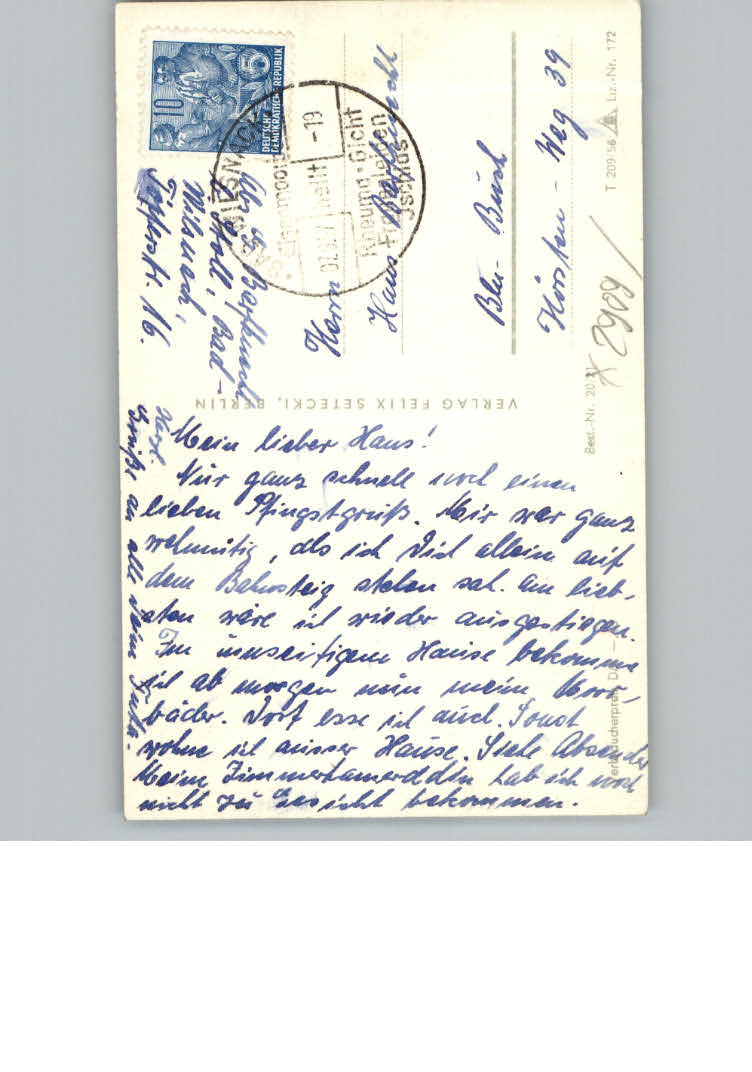 Mein lieber Hans!
Nur ganz schnell noch einen
lieben Pfingstgruß. Mir war ganz
wehmütig, als ich Dich allein auf
dem Bahnsteig stehen sah. Am lieb-
sten wäre ich wieder ausgestiegen.
Im umseitigem Hause bekomme
ich ab morgen nun meine Moor-
bäder. Dort esse ich auch. Sonst
wohne ich ausser Hause. Siehe Absender
Meine Zimmerkameraddin hab ich noch
nicht zu Gesicht bekommen.
Herzl.
Grüße an alle Deine
Abs. G.
Bad-
Wilsnack,
Str. 16.
10
DEUTSCHE
DEMOKRATISCHE REPUBLIK
BAD WILSNACK
Eisenmoor
heilt
-19
Rheuma · Gicht
Frauenleiden
Ischias
Herrn
Hans
Bln- Buch
Weg 39
X 2909
VERLAG FELIX SETECKI, BERLIN
Best.-Nr. 20
T 209/56
Liz.-Nr. 172